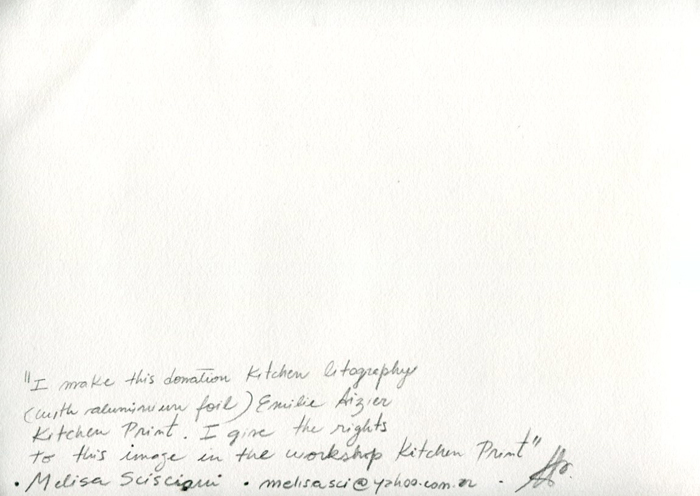 "I make this donation Kitchen litography
(with raluminium foil) Emilie Aizier
Kitchen Print. I give the rights
to this image in the workshop Kitchen Print"
• Melisa Scisciani • melisasci@yahoo.com.ar •